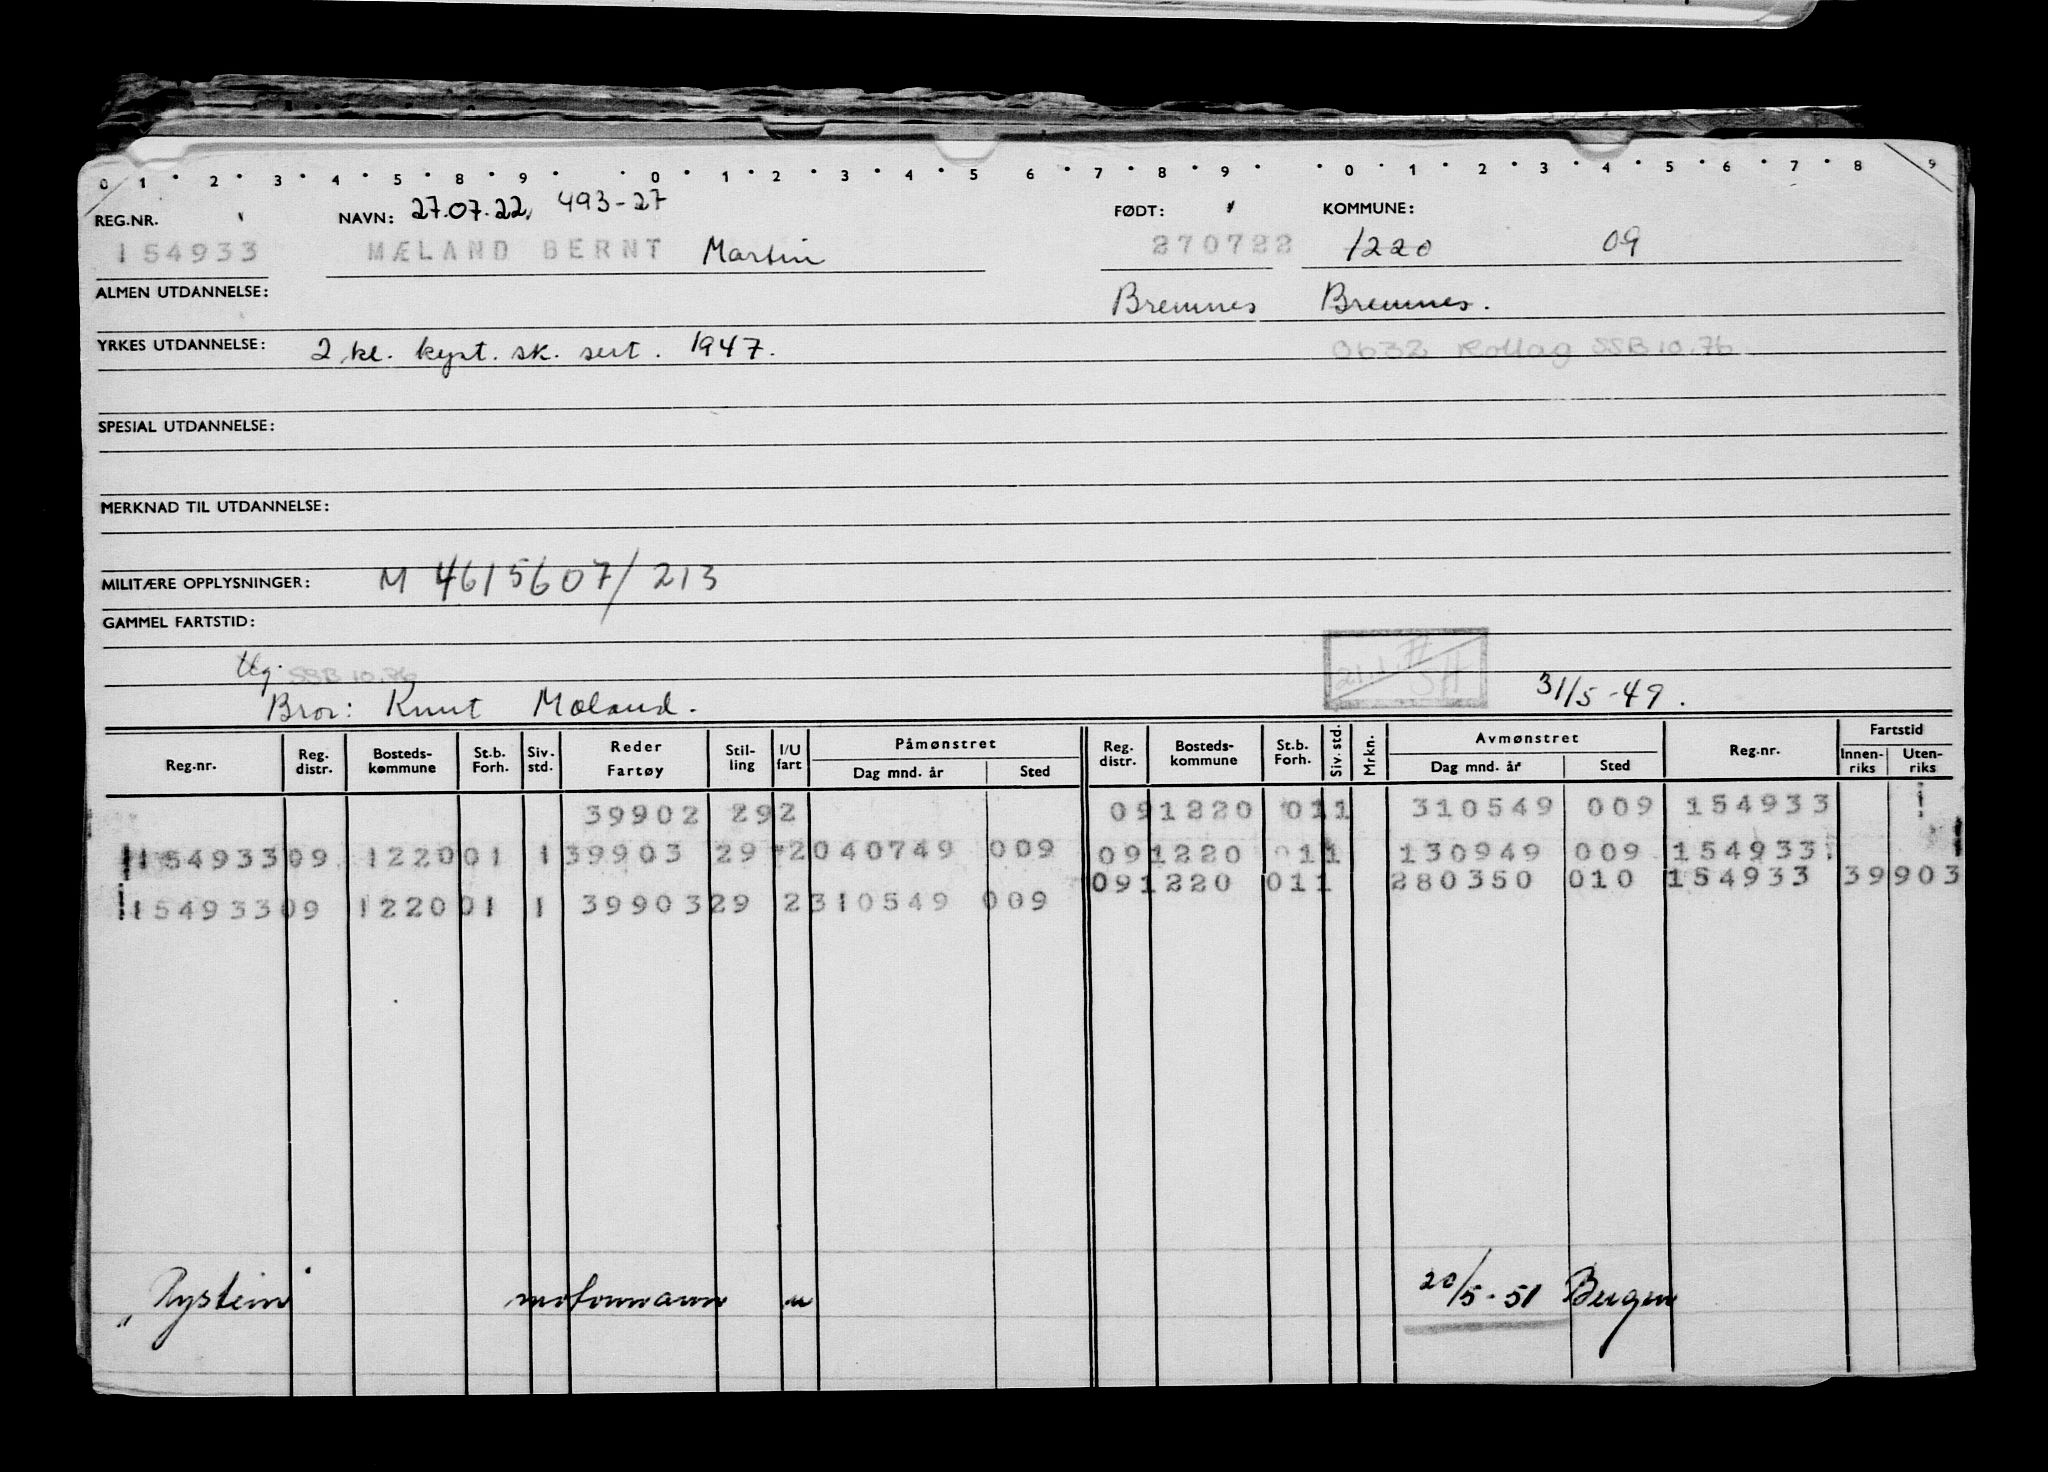 0 1 2 3 4 5 8 9 0 1 2 3 4 5 6 7 8 9 0 1 2 3 4 5 6 7 8 9
REG.NR. NAVN: 27.07.22, 493-27 FØDT: KOMMUNE:
154933 MÆLAND BERNT Martin 270722 1220 09
ALMEN UTDANNELSE: Bremnes Bremnes.
YRKES UTDANNELSE: 2 kl. kyst. sk. sert. 1947. 0632 Rollag SSB 10.76
SPESIAL UTDANNELSE:
MERKNAD TIL UTDANNELSE:
MILITÆRE OPPLYSNINGER: M 4615607/213
GAMMEL FARTSTID:
Ug. SSB 10.76
Bror: Knut Mæland. 31/5-49.
Reg.nr. Reg. distr. Bosteds- kommune St.b. Forh. Siv. std. Reder Fartøy Stil- ling I/U fart Påmønstret Dag mnd. år Sted Reg. distr. Bosteds- kommune St.b. Forh. Siv. std. Mrkn. Avmønstret Dag mnd. år Sted Reg.nr. Fartstid Innen- riks Uten- riks
39902 292 091220 011 310549 009 154933
15493309 122001 139903 29 2040749 009 091220 011 130949 009 154933
091220 011 280350 010 154933 39903
15493309 122001 1 3990329 2310549 009
„Rystein" motormann u 20/5-51 Bergen